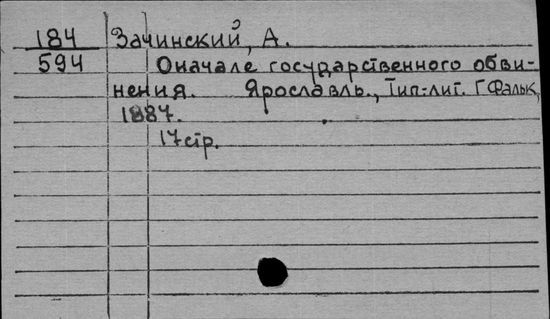 184 Зачинский, А.
594 Оначале государственного обви-
нения. Ярославль., Тип-лит. Г Фальк,
1887.
17 стр.